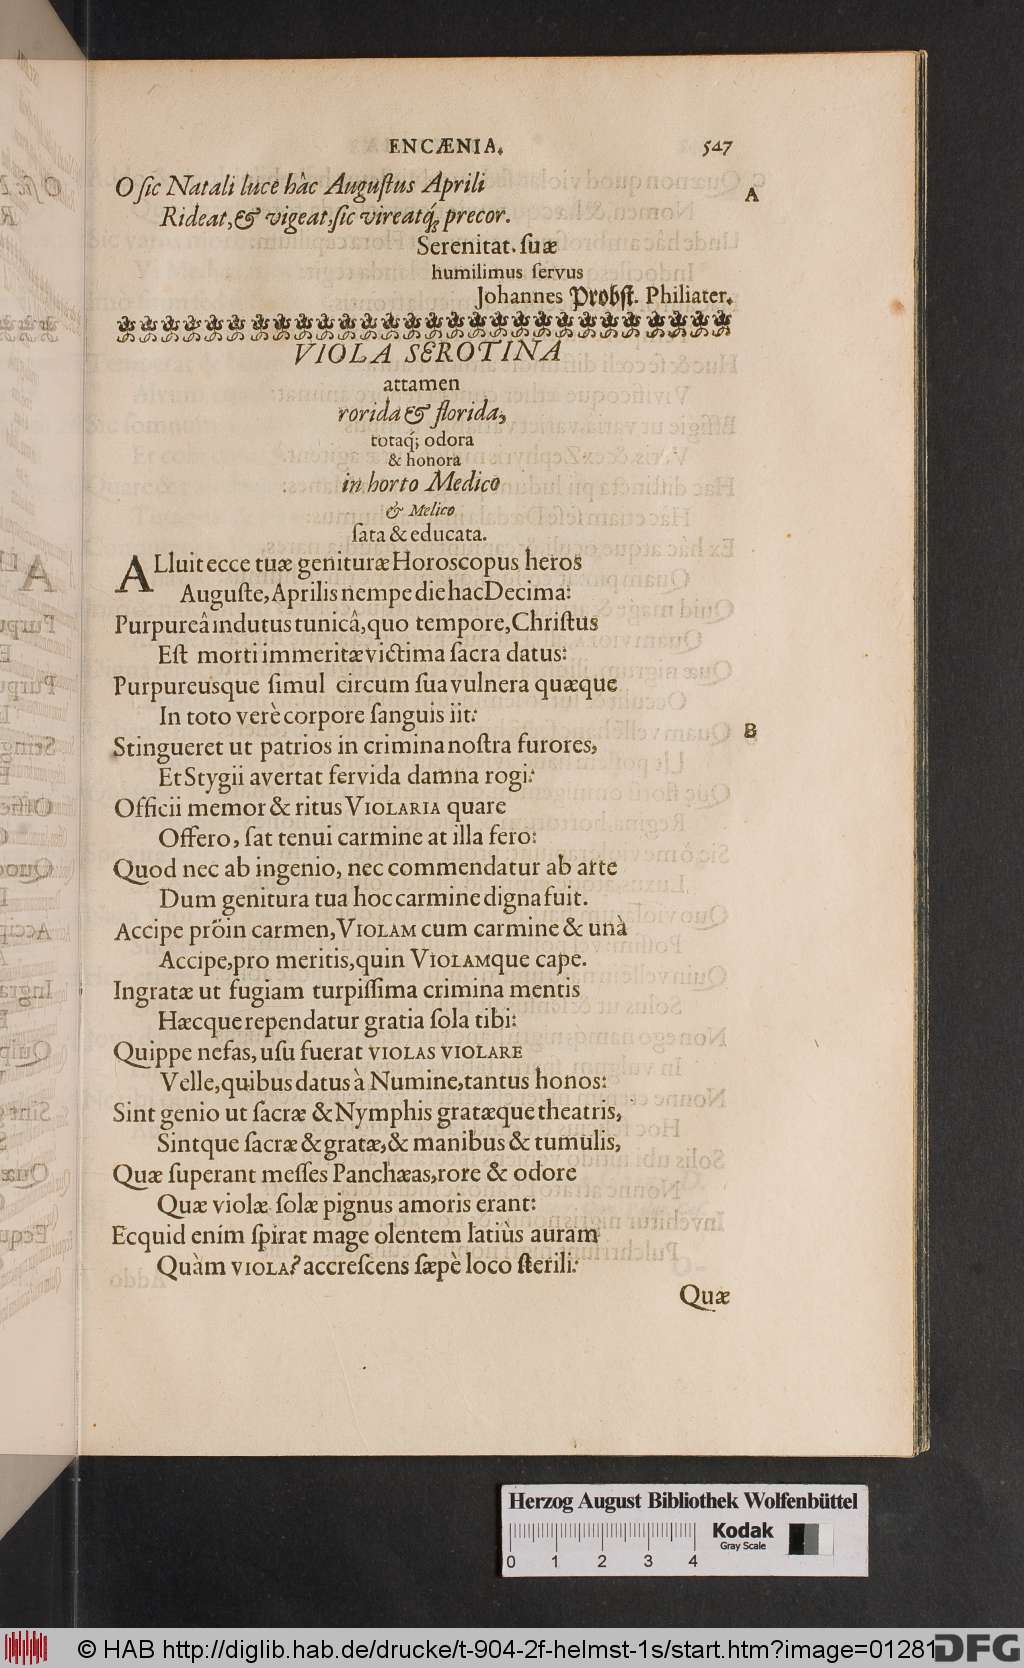 ENCÆNIA. 547
O ſic Natali luce hàc Auguſtus Aprili
A
Rideat,& vigeat,ſic vireatq́; precor.
Serenitat. ſuæ
humilimus ſervus
Johannes Probſt. Philiater.
VIOLA SEROTINA
attamen
rorida & florida,
totaq́; odora
& honora
in horto Medico
& Melico
ſata & educata.
ALluit ecce tuæ genituræ Horoscopus heros
Auguſte, Aprilis nempe die hac Decima:
Purpureâ indutus tunicâ, quo tempore, Chriſtus
Eſt morti immeritæ victima ſacra datus:
Purpureusque ſimul circum ſua vulnera quæque
In toto verè corpore ſanguis iit:
B
Stingueret ut patrios in crimina noſtra furores,
Et Stygii avertat fervida damna rogi:
Officii memor & ritus VIOLARIA quare
Offero, ſat tenui carmine at illa fero:
Quod nec ab ingenio, nec commendatur ab arte
Dum genitura tua hoc carmine digna fuit.
Accipe pröin carmen, VIOLAM cum carmine & unà
Accipe, pro meritis, quin VIOLAMque cape.
Ingratæ ut fugiam turpiſſima crimina mentis
Hæcque rependatur gratia ſola tibi:
Quippe nefas, uſu fuerat VIOLAS VIOLARE
Velle, quibus datus à Numine, tantus honos:
Sint genio ut ſacræ & Nymphis gratæque theatris,
Sintque ſacræ & gratæ, & manibus & tumulis,
Quæ ſuperant meſſes Panchæas, rore & odore
Quæ violæ ſolæ pignus amoris erant:
Ecquid enim ſpirat mage olentem latiùs auram
Quàm VIOLA? accreſcens ſæpè loco ſterili:
Quæ
Herzog August Bibliothek Wolfenbüttel
Kodak
Gray Scale
0 1 2 3 4
© HAB http://diglib.hab.de/drucke/t-904-2f-helmst-1s/start.htm?image=01281
DFG